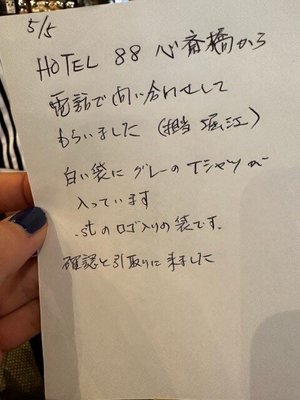 5/5
HOTEL 88 心斎橋から
電話で問い合わせして
もらいました (担当 堀江)
白い袋に グレーの Tシャツが
入っています
.stの ロゴ入りの袋です.
確認と引取りに来ました